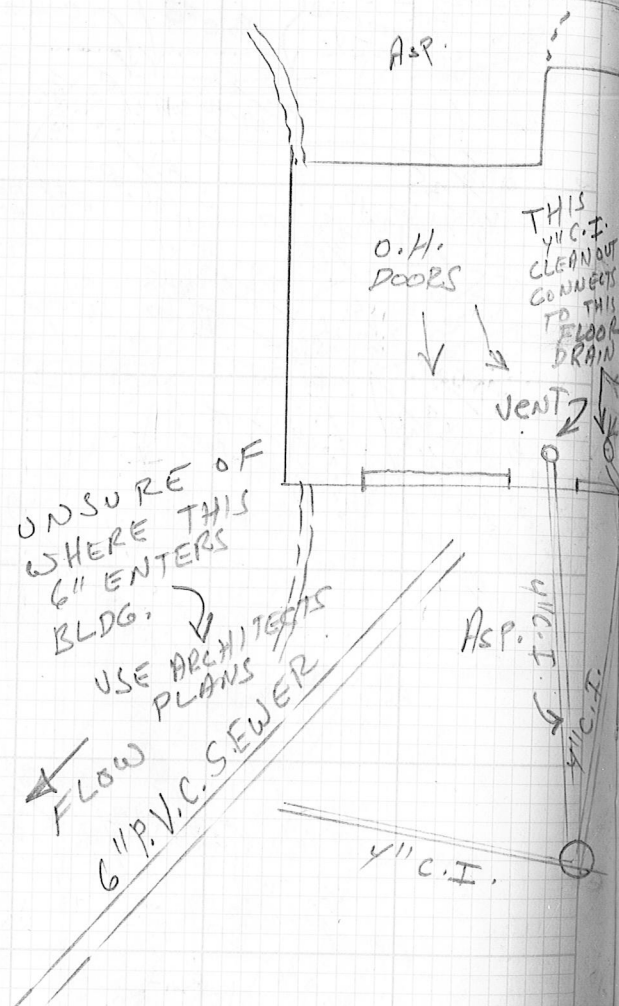 ASP.
O.H.
DOORS
THIS
4" C.I.
CLEANOUT
CONNECTS
TO THIS
FLOOR
DRAIN
VENT
UNSURE OF
WHERE THIS
6" ENTERS
BLDG.
USE ARCHITECTS
PLANS
FLOW
6" P.V.C. SEWER
ASP.
4" C.I.
4" C.I.
4" C.I.